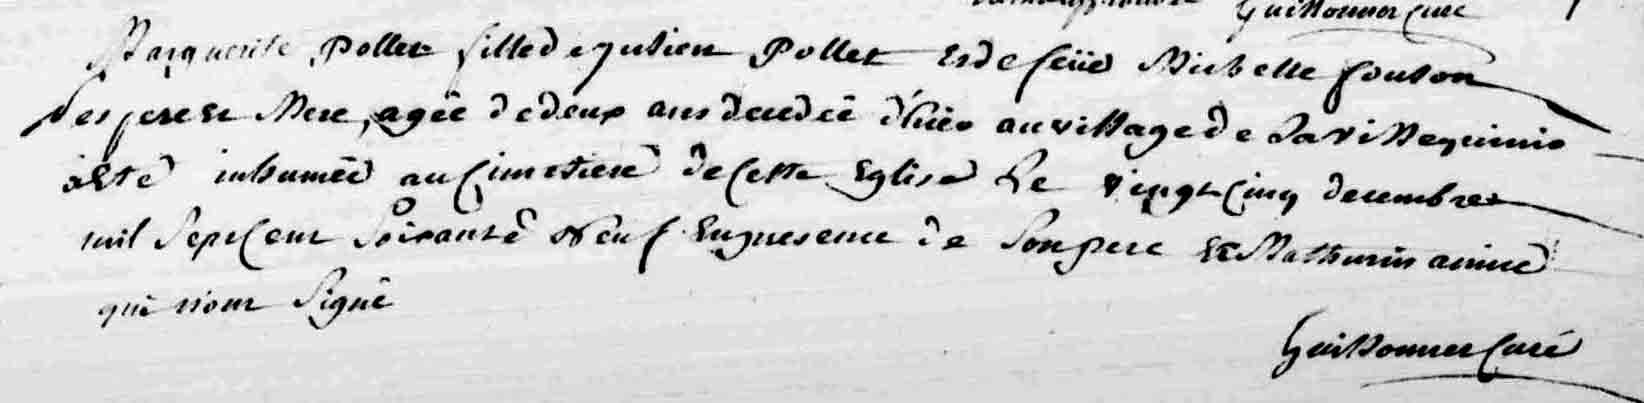 Guillonnet Curé
Marguerite Pollet fille de julien Pollet et de feüe Michelle
ses pere et Mere, agée de deux ans decedeé d'hier au village de la villequinio
a eté inhumeé au Cimetiere de cette Eglise Le vingt Cinq decembre
mil Sept Cent Soixante Neuf En presence de Son pere et Mathurin
qui n'ont Signé
Guillonnet Curé